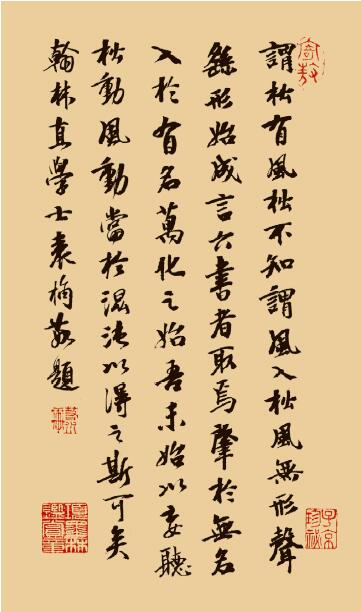 謂松有風松不知謂風入松風無形聲
繇形始成言六書者取焉肇於無名
入於有名萬化之始吾未始以妄聽
松動風動當於混沌以得之斯可矣
翰林直學士袁桷敬題
子京珍秘
項墨林鑑賞章